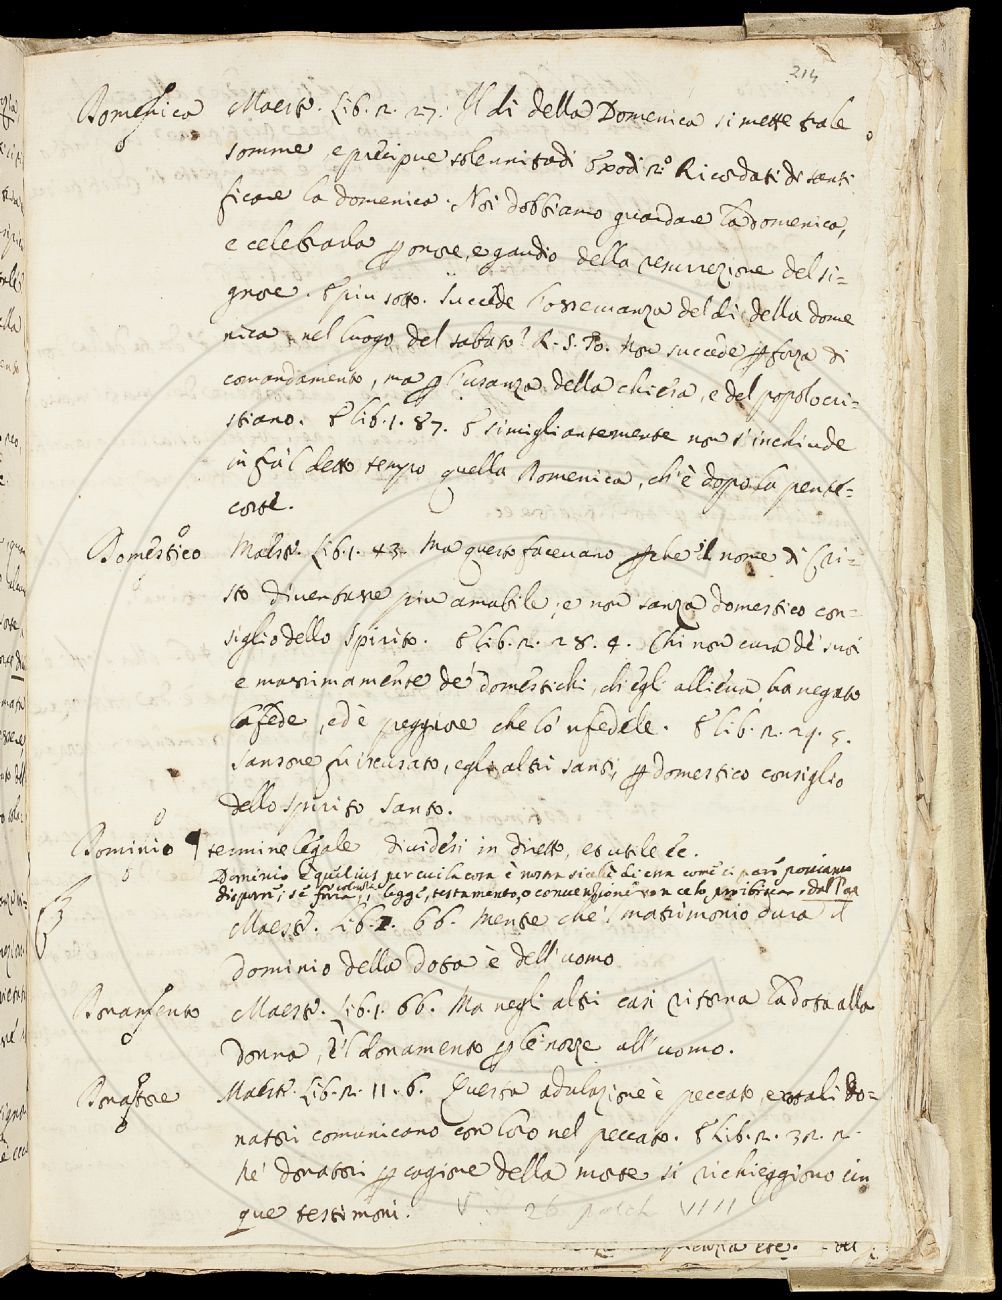 214
Domenica Maestr. Lib. 2. 27. Il dì della Domenica si mette tra le
somme, e precipue solennitadi Exodi 20 Ricordati di santi
ficare la domenica. Noi dobbiamo guardare la domenica,
e celebrarla p onore, e gaudio della resurrezione del si-
gnore. E piu sotto. Succede l'osservanza del dì della dome
nica nel luogo del sabato? R. S. To. Non succede p forza di
comandamento, ma p l'usanza della chiesa, e del popolo cri-
stiano. E lib. 1. 87. E simigliantemente non s'inchiude
in fra'l detto tempo quella Domenica, ch'è dopo la pente-
coste.
Domestico Maestr. Lib. 1. 43. Ma questo facevano p che il nome di Cri-
sto diventasse piu amabile, e non sanza domestico con-
siglio dello Spirito. E lib. 2. 28. 4. Chi non cura de' suoi
e massimamente de' domestichi, ch'egli allieva, ha negato
la fede, ed è peggiore che lo 'nfedele. E lib. 2. 29. 5.
Sansone fu iscusato, e gli altri santi, p domestico consiglio
dello spirito Santo.
Dominio termine legale dividesi in diretto, et utile &c.
Dominio è quel jus per cui la cosa è nostra sicchè di essa come ci pare possiamo
disporre, se forza, legge, testamento, o convenzione non ce lo proibisca.
Maestr. Lib. 1. 66. Mentre che 'l matrimonio dura il
dominio della dota è dell'uomo
Donamento Maestr. Lib. 1. 66. Ma negli altri casi ritorna la dota alla
donna, e 'l donamento p le nozze all'uomo.
Donatore Maestr. Lib. 2. 11. 6. Questa adulazione è peccato, e cotali do-
natori comunicano con loro nel peccato. E Lib. 2. 32. 2.
Ne' donatori p cagione della morte si richieggiono cin
que testimoni.